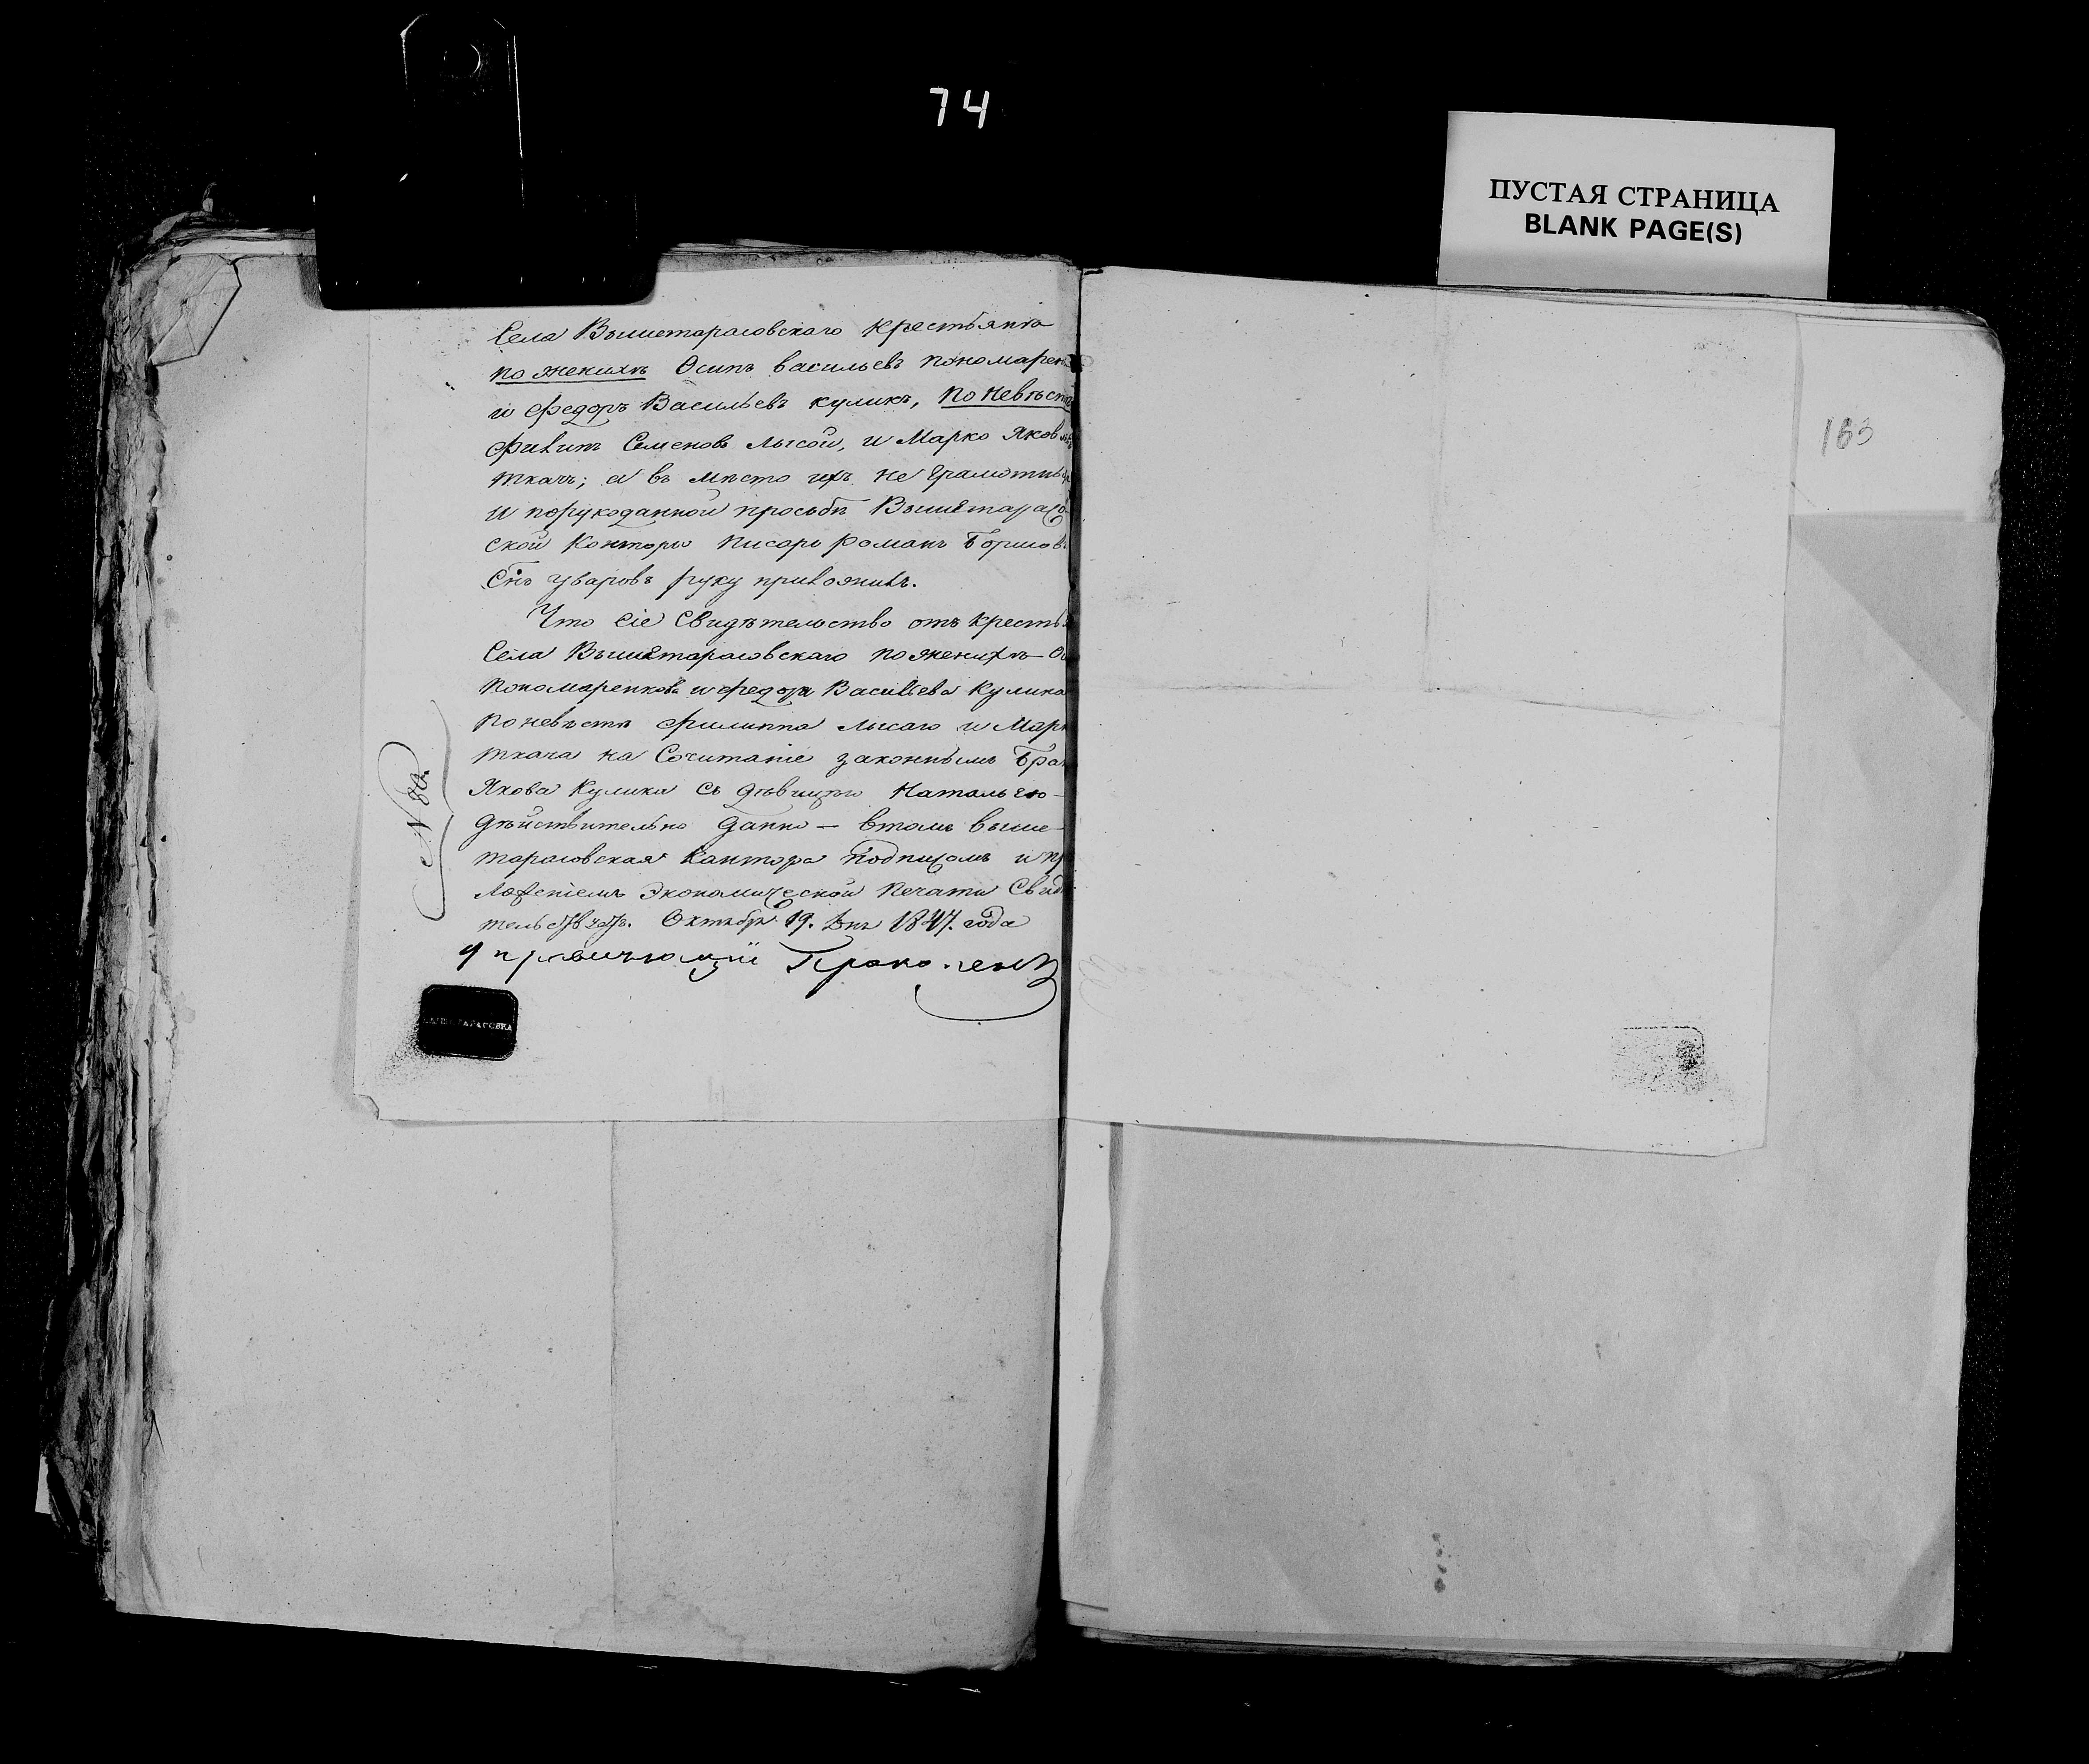 74
ПУСТАЯ СТРАНИЦА
BLANK PAGE(S)
163
Села Вышетарасовскаго крестьяне
по женихѣ Осипъ Васильевъ Пономарен
и Федоръ Васильевъ Куликъ, по невѣстѣ
Филипъ Семеновъ Лысой, и Марко Яковлевъ
ткачъ; а въ мѣсто ихъ не грамотныхъ
и порукоданной просьбѣ Вышетарасов
ской Конторы писарь Романъ
Снъ Уваровъ руку приложилъ.
Что сіе свидѣтельство отъ кресть
Села Вышетарасовскаго по женихѣ О
Пономаренкова и Федора Васильева Кулика
по невѣстѣ Филиппа Лысаго и Марк
ткача на сочитаніе законнымъ Бра
Якова Кулика съ дѣвицею Натальею
дѣйствительно данно — втомъ выше
тарасовская Кантора подписомъ и пр
ложеніемъ Экономической печати Свидѣ
тельствуетъ. Октября 19. дня 1847. года
Управляющій
№ 80.